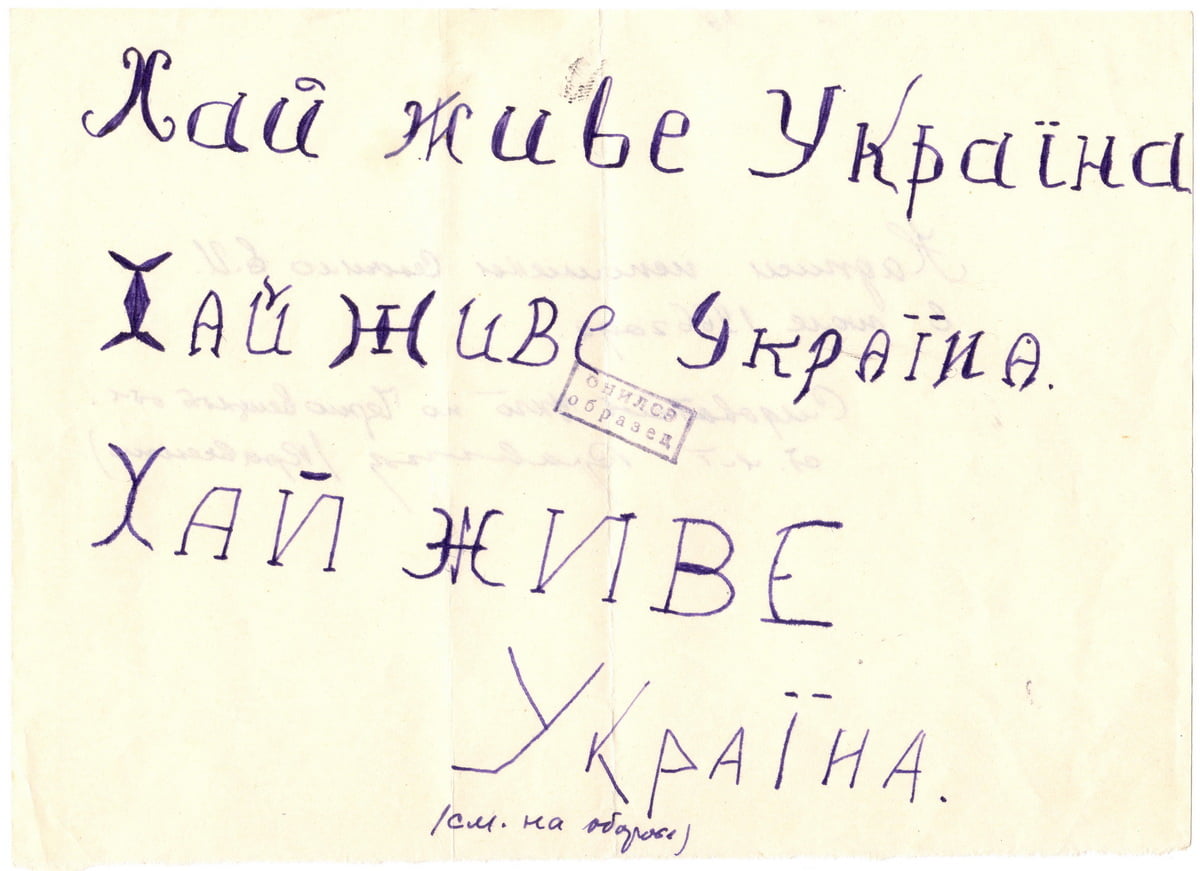 Хай живе Україна
Хай живе Україна.
онилсэ
образец
ХАЙ ЖИВЕ
УКРАЇНА.
(см. на обороте)